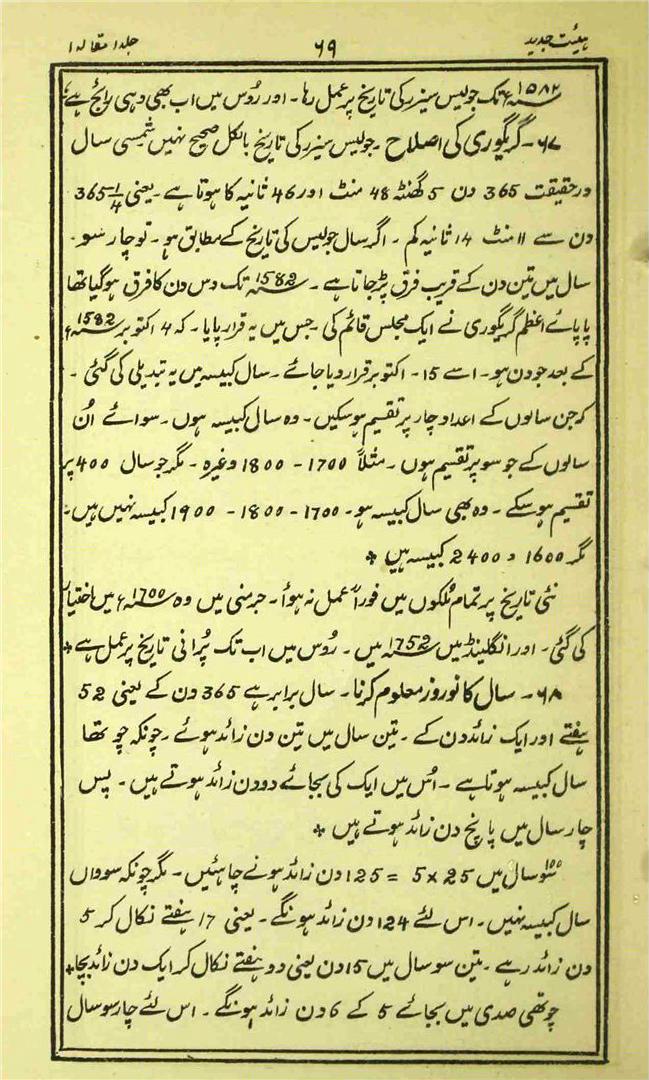 ہیئت جدید ۶۹ جلد ا مقالہ ا
۱۵۸۲ء تک جولیس سیزر کی تاریخ پر عمل رہا۔ اور رُوس میں اب بھی وہی رائج ہے
۶۷ - گریگوری کی اصلاح ۔ جولیس سیزر کی تاریخ بالکل صحیح نہیں شمسی سال
درحقیقت 365 دن 5 گھنٹہ 48 منٹ اور 46 ثانیہ کا ہوتا ہے ۔ یعنی 365¼
دن سے 11 منٹ 14 ثانیہ کم ۔ اگر سال جولیس کی تاریخ کے مطابق ہو ۔ تو چار سو
سال میں تین دن کے قریب فرق پڑجاتا ہے ۔ سنہ 1582 تک دس دن کا فرق ہوگیا تھا
پاپائے اعظم گریگوری نے ایک مجلس قائم کی ۔ جس میں یہ قرار پایا ۔ کہ 4 اکتوبر سنہ 1582ء
کے بعد جو دن ہو ۔ اسے 15 ۔ اکتوبر قرار دیا جائے ۔ سال کبیسہ میں یہ تبدیلی کی گئی ۔
کہ جن سالوں کے اعداد چار پر تقسیم ہوسکیں ۔ وہ سال کبیسہ ہوں ۔ سوائے اُن
سالوں کے جو سو پر تقسیم ہوں ۔ مثلاً 1700 - 1800 وغیرہ ۔ مگر جو سال 400 پر
تقسیم ہوسکے ۔ وہ بھی سال کبیسہ ہو ۔ 1700 - 1800 - 1900 کبیسہ نہیں ہیں ۔
مگر 1600 و 2400 کبیسہ ہیں ٭
نئی تاریخ پر تمام مُلکوں میں فوراً عمل نہ ہوُا ۔ جرمنی میں وہ سنہ 1700ء میں اختیار
کی گئی ۔ اور انگلینڈ میں سنہ 1752 میں ۔ رُوس میں اب تک پُرانی تاریخ پر عمل ہے ٭
۶۸ - سال کا نوروز معلوم کرنا ۔ سال برابر ہے 365 دن کے یعنی 52
ہفتے اور ایک زائد دن کے ۔ تین سال میں تین دن زائد ہوئے ۔ چونکہ چوتھا
سال کبیسہ ہوتا ہے ۔ اُس میں ایک کی بجائے دو دن زائد ہوتے ہیں ۔ پس
چار سال میں پانچ دن زائد ہوتے ہیں ٭
سو سال میں 25 × 5 = 125 دن زائد ہونے چاہئیں ۔ مگر چونکہ سوواں
سال کبیسہ نہیں ۔ اس لئے 124 دن زائد ہونگے ۔ یعنی 17 ہفتے نکال کر 5
دن زائد رہے ۔ تین سو سال میں 15 دن یعنی دو ہفتے نکال کر ایک دن زائد بچا ٭
چوتھی صدی میں بجائے 5 کے 6 دن زائد ہونگے ۔ اس لئے چار سو سال